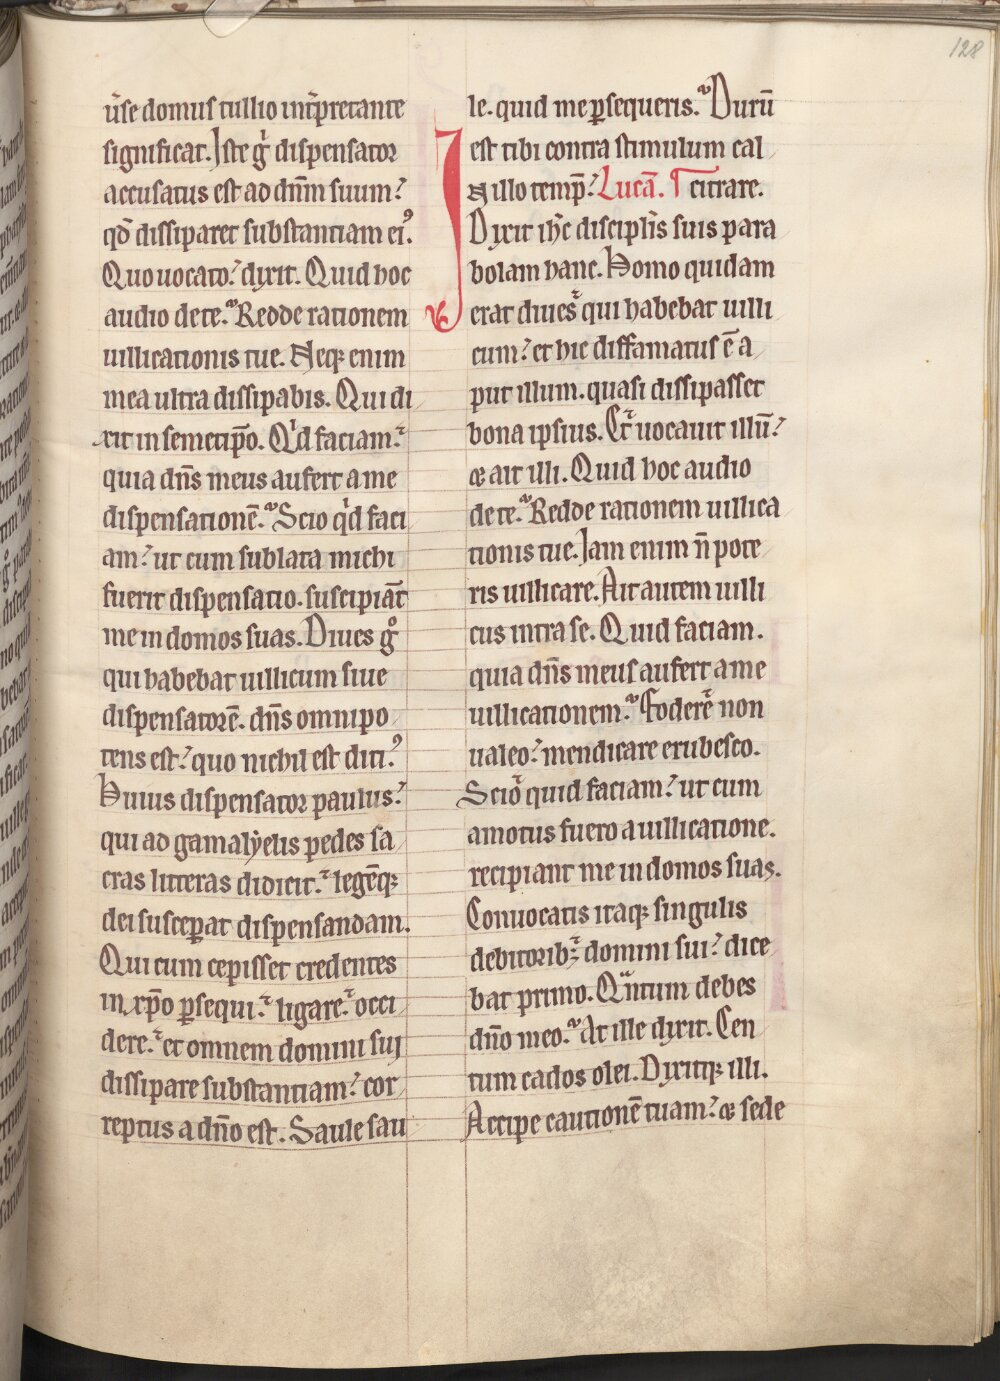 128
ůse domus tullio int̾pretante
significat. Iste gͥ dispensator
accusatus est ad dn̄m suum?
qđ dissiparet substantiam eiꝰ.
Quo uocato? dixit. Quid hoc
audio de te. Redde rationem
uillicationis tue. Neqꝫ enim
mea ultra dissipabis. Qui di
xit in semetip̄o. Qͥd faciam?
quia dn̄s meus aufert a me
dispensationē. Scio qͥd faci
am? ut cum sublata michi
fuerit dispensatio. suscipiāt
me in domos suas. Diues gͦ
qui habebat uillicum siue
dispensatorē. dn̄s omnipo
tens est? quo nichil est ditiꝰ.
Huius dispensator paulus?
qui ad gamalẏelis pedes sa
cras litteras didicit. legēqꝫ
dei susceꝑat dispensandam.
Qui cum cepisset credentes
in xp̄o ꝑsequi. ligare. occi
dere. et omnem domini sui
dissipare substantiam? cor
reptus a dn̄o est. Saule sau
le. quid me ꝑsequeris. Durū
est tibi contra stimulum cal
citrare.
In illo temp̄? Lucā.
Dixit ihc̄ discipl̄is suis para
bolam hanc. Homo quidam
erat diues qui habebat uilli
cum? et hic diffamatus ē a
put illum. quasi dissipasset
bona ipsius. Et uocauit illū?
& ait illi. Quid hoc audio
de te. Redde rationem uillica
tionis tue. Iam enim n̄ pote
ris uillicare. Ait autem uilli
cus intra se. Quid faciam.
quia dn̄s meus aufert a me
uillicationem. Fodere non
ualeo? mendicare erubesco.
Scio quid faciam? ut cum
amotus fuero a uillicatione.
recipiant me in domos suas.
Conuocatis itaqꝫ singulis
debitoribꝫ domini sui? dice
bat primo. Qᷓntum debes
dn̄o meo. At ille dixit. Cen
tum cados olei. Dixitqꝫ illi.
Accipe cautionē tuam? & sede